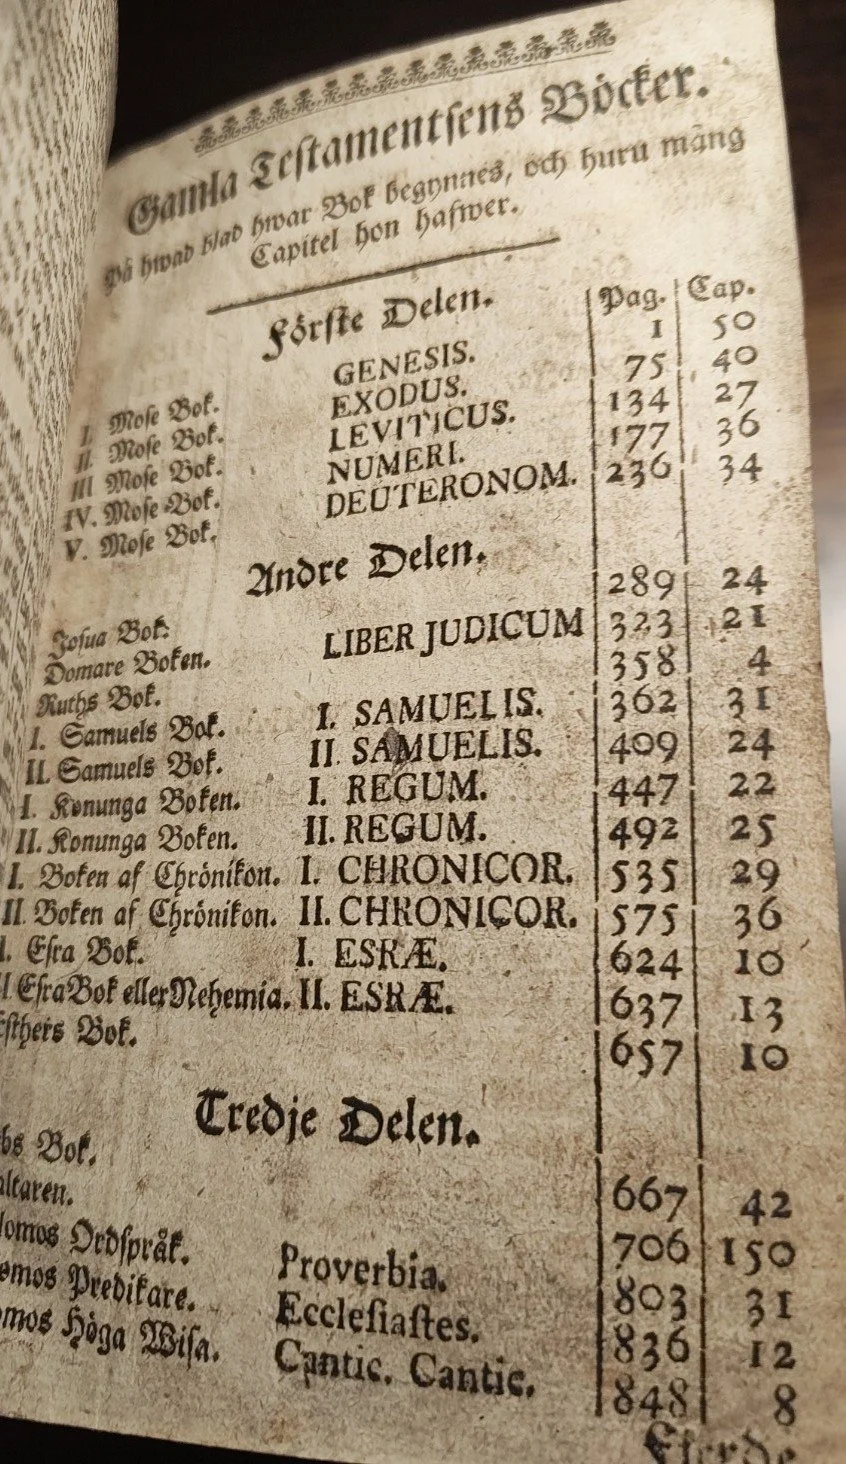 Gamla Testamentsens Böcker.
På hwad blad hwar Bok begynnes, och huru mång
Capitel hon hafwer.
Förste Delen. Pag. Cap.
I. Mose Bok. GENESIS. 1 50
II. Mose Bok. EXODUS. 75 40
III Mose Bok. LEVITICUS. 134 27
IV. Mose Bok. NUMERI. 177 36
V. Mose Bok. DEUTERONOM. 236 34
Andre Delen.
Josua Bok. 289 24
Domare Boken. LIBER JUDICUM 323 21
Ruths Bok. 358 4
I. Samuels Bok. I. SAMUELIS. 362 31
II. Samuels Bok. II. SAMUELIS. 409 24
I. Konunga Boken. I. REGUM. 447 22
II. Konunga Boken. II. REGUM. 492 25
I. Boken af Chrönikon. I. CHRONICOR. 535 29
II. Boken af Chrönikon. II. CHRONICOR. 575 36
I. Esra Bok. I. ESRÆ. 624 10
II Esra Bok eller Nehemia. II. ESRÆ. 637 13
Esthers Bok. 657 10
Tredje Delen.
bs Bok. 667 42
altaren. 706 150
lomos Ordspråk. Proverbia. 803 31
omos Predikare. Ecclesiastes. 836 12
omos Höga Wisa. Cantic. Cantic. 848 8
Fierde